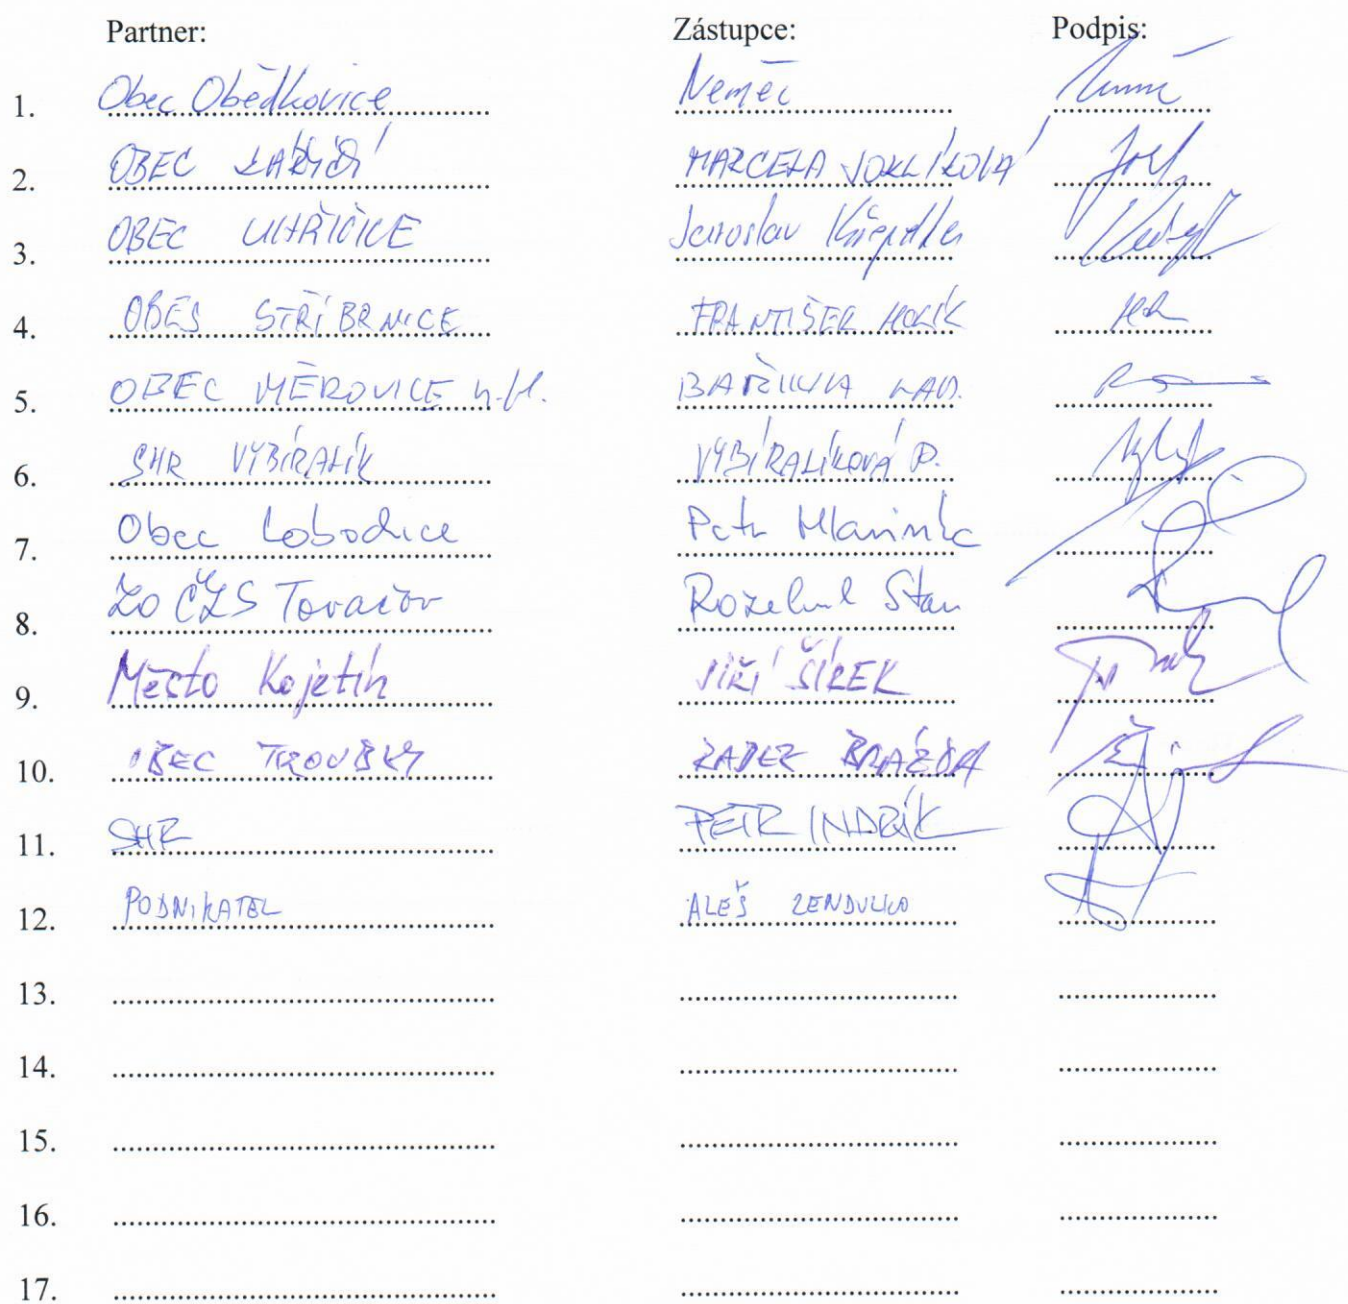 Partner: Zástupce: Podpis:
1. Obec Obědkovice Němec
2. OBEC MARCELA JOKLÍKOVÁ
3. OBEC UHŘIČICE Jaroslav
4. OBEC STŘÍBRNICE FRANTIŠEK HOLÍK
5. OBEC MĚROVICE n.H. LAD.
6. SHR VYBÍRALÍK VYBÍRALÍKOVÁ P.
7. Obec Lobodice Petr
8. ZO ČZS Tovačov Stan
9. Město Kojetín JIŘÍ ŠÍREK
10. OBEC TROUBKY RADEK BRÁZDA
11. SHR PETR INDRÁK
12. PODNIKATEL ALEŠ ZENDULKA
13.
14.
15.
16.
17.